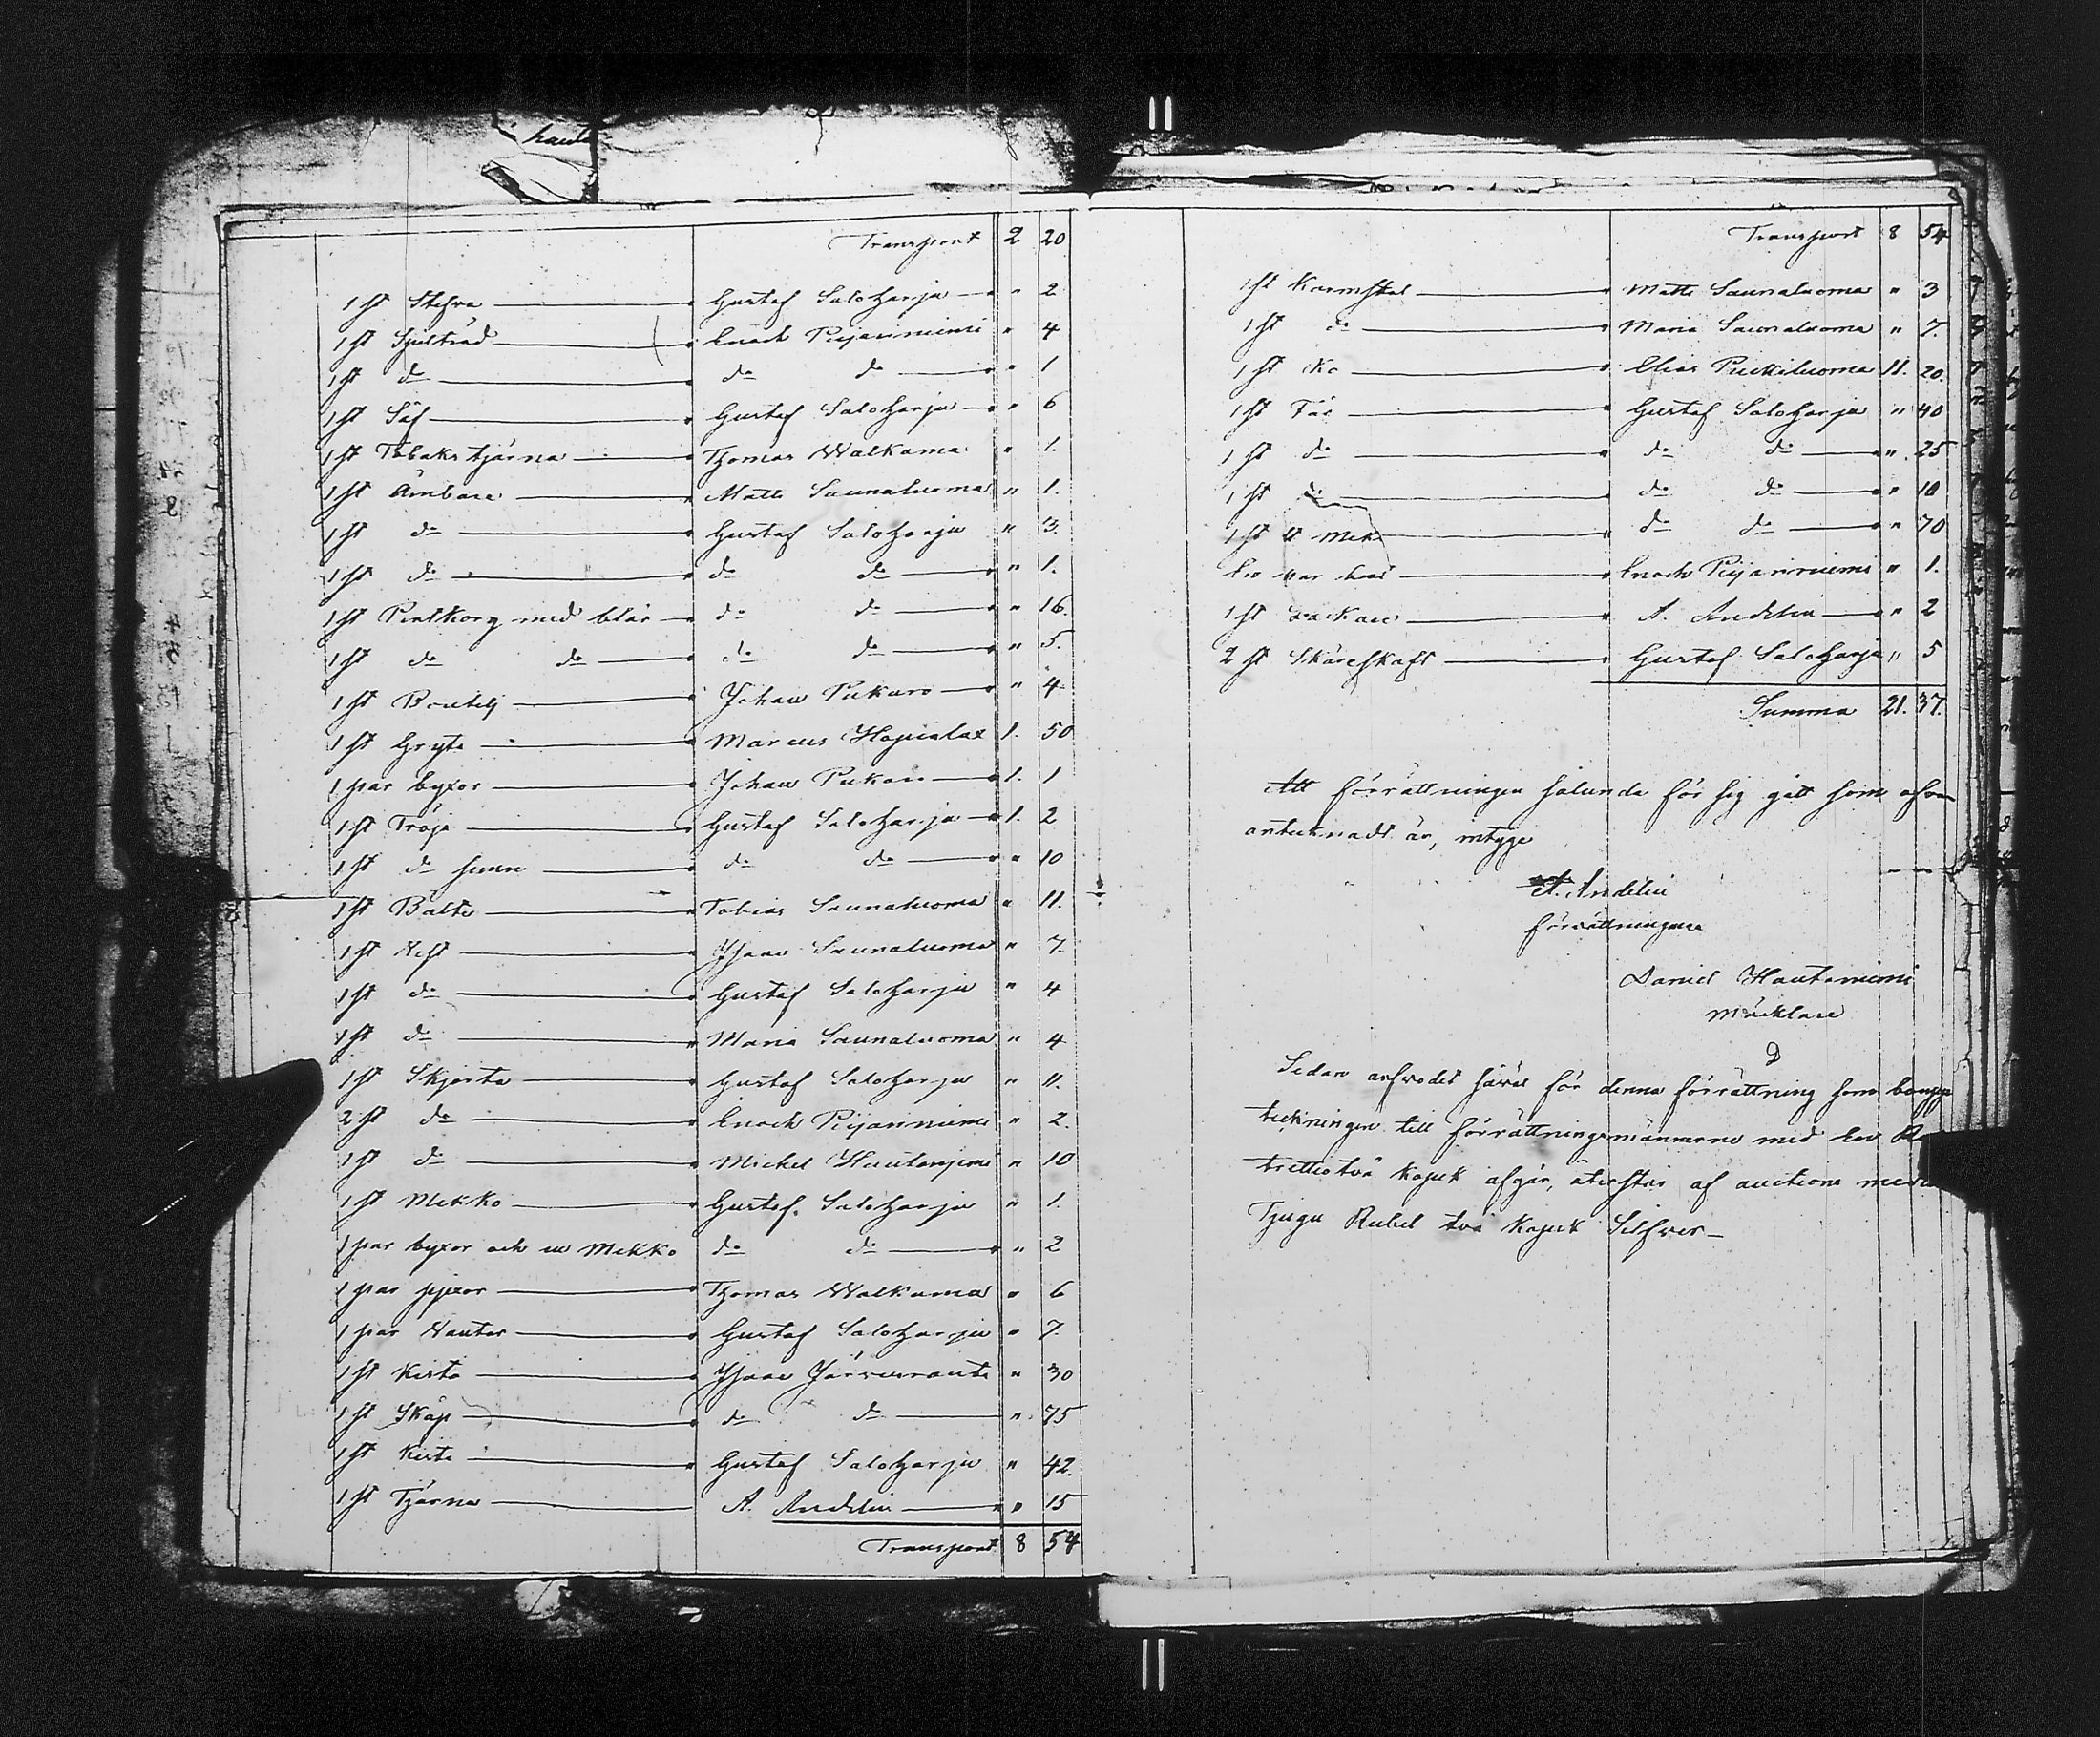 hauta
Transport 2 20
1 st Stefva Gustaf Saloharju " 2
1 st Spiltråd Enoch Pirjarinniemi " 4
1 st do do do " 1
1 st Såf Gustaf Saloharju " 6
1 st Tobakstjärna Thomas Walkama " 1.
1 st Ämbare Matts Saunaluoma " 1.
1 st do Gustaf Saloharju " 3.
1 st do do do " 1.
1 st Pertkorg med blår do do " 16.
1 st do do do do " 5.
1 st Boutelj Johan Pukaro " 4
1 st Gryta Marcus Hapialax 1. 50
1 par byxor Johan Pukaro 1. 1
1 st Tröja Gustaf Saloharju 1. 2
1 st do do do " 10
1 st Bälte Tobias Saunaluoma " 11.
1 st Vest Isaac Saunaluoma " 7.
1 st do Gustaf Saloharju " 4
1 st do Maria Saunaluoma " 4
1 st Skjorta Gustaf Saloharju " 11.
2 st do Enoch Pirjarinniemi " 2.
1 st do Michel Hautaniemi " 10
1 st Mekko Gustaf Saloharju " 1.
1 par byxor och en Mekko do do " 2
1 par Thomas Walkama " 6
1 par Vantar Gustaf Saloharju " 7.
1 st Kista Isaac Järvenranta " 30
1 st Skåp do do " 75
1 st Kista Gustaf Saloharju " 42.
1 st Tjärna A. Andelin " 15
Transport 8 54
Transport 8 54
1 st Karmstol Matts Saunaluoma " 3
1 st do Maria Saunaluoma " 7.
1 st Ko Elias Puskiluoma 11. 20.
1 st Får Gustaf Saloharju " 40
1 st do do do " 25
1 st do do do " 10
1 st do do " 70
En Enoch Pirjarinniemi " 1.
1 st A. Andelin " 2
2 st Skäreskaft Gustaf Saloharju " 5
Summa 21. 37.
Att förrättningen sålunda för sig gått som ofvan
antecknadt är, intyga
A. Andelin
förrättningman
Daniel Hautaniemi
Mäcklare
Sedan arfvodet såväl för denna förrättning som
teckningen till förrättningsmännerne med En
trettiotvå kopek afgår, återstår af auctions
Tjugu Rubel två kopek Silfver